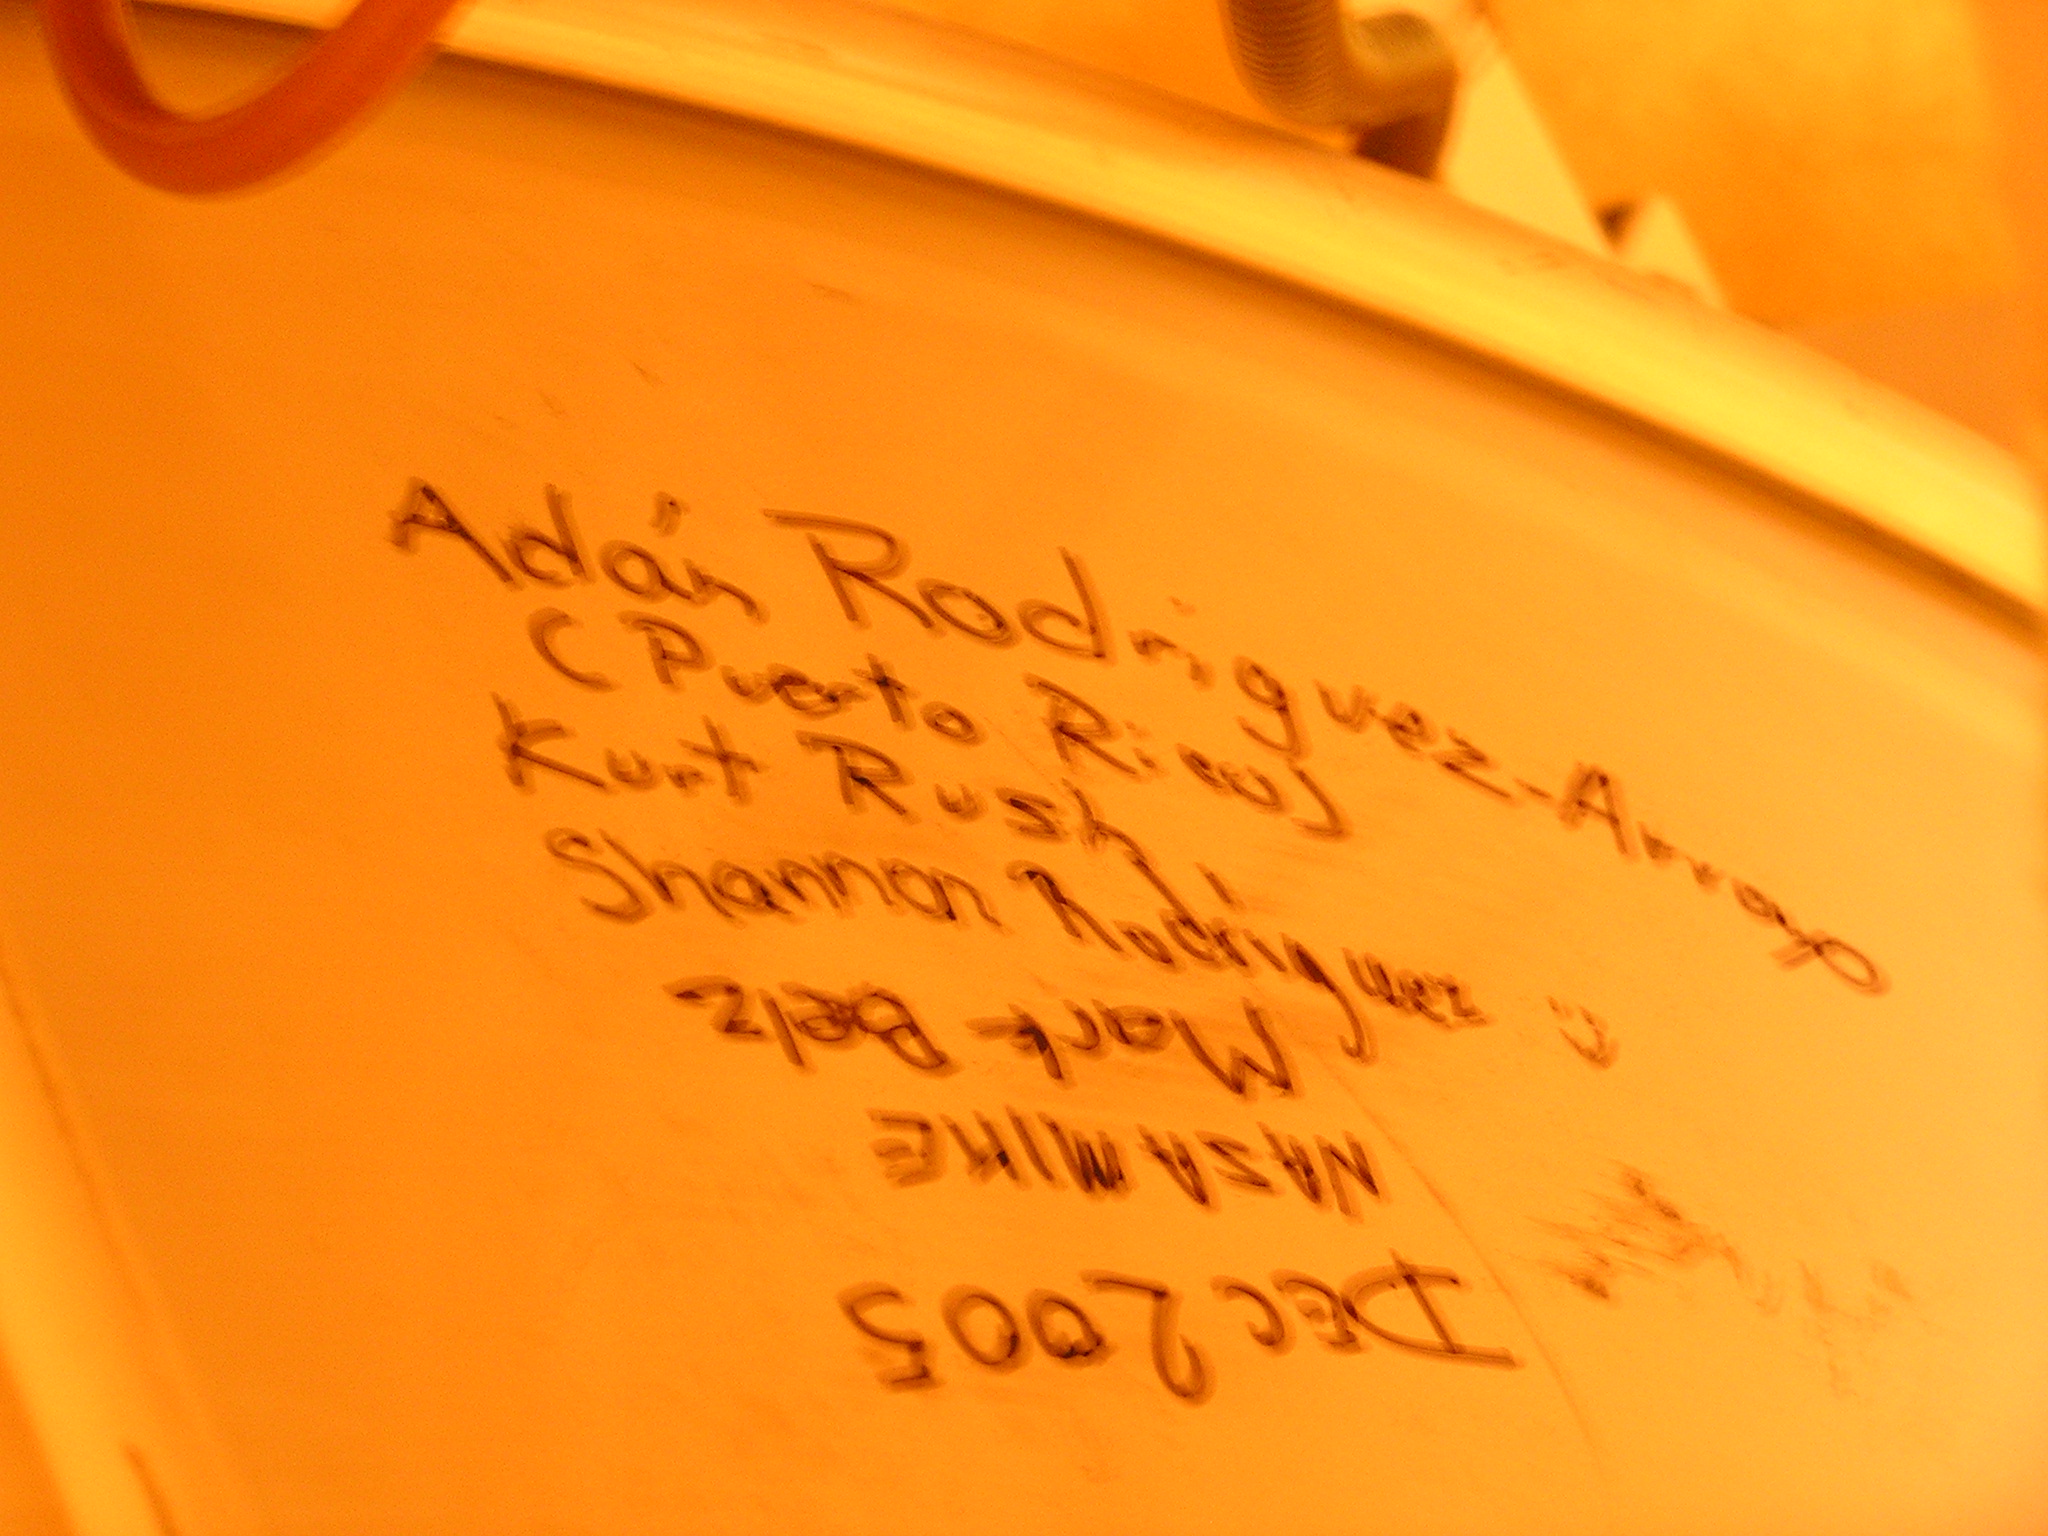 Adán Rodriguez-Arroyo
(Puerto Rico)
Kurt Rush
Shannon Rodriguez :)
Mark Belz
NASA MIKE
DEC 2005